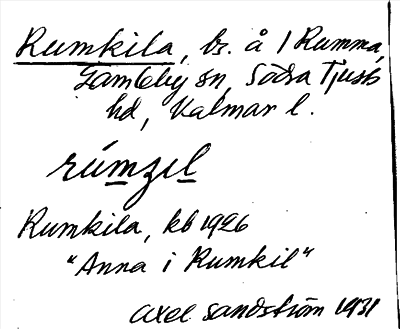 Rumkila, br. å / Rumma,
Gamleby sn, Södra Tjusts
hd, Kalmar l.
rúmzıl
Rumkila, kb 1926
"Anna i Rumkil"
Axel Sandström 1931